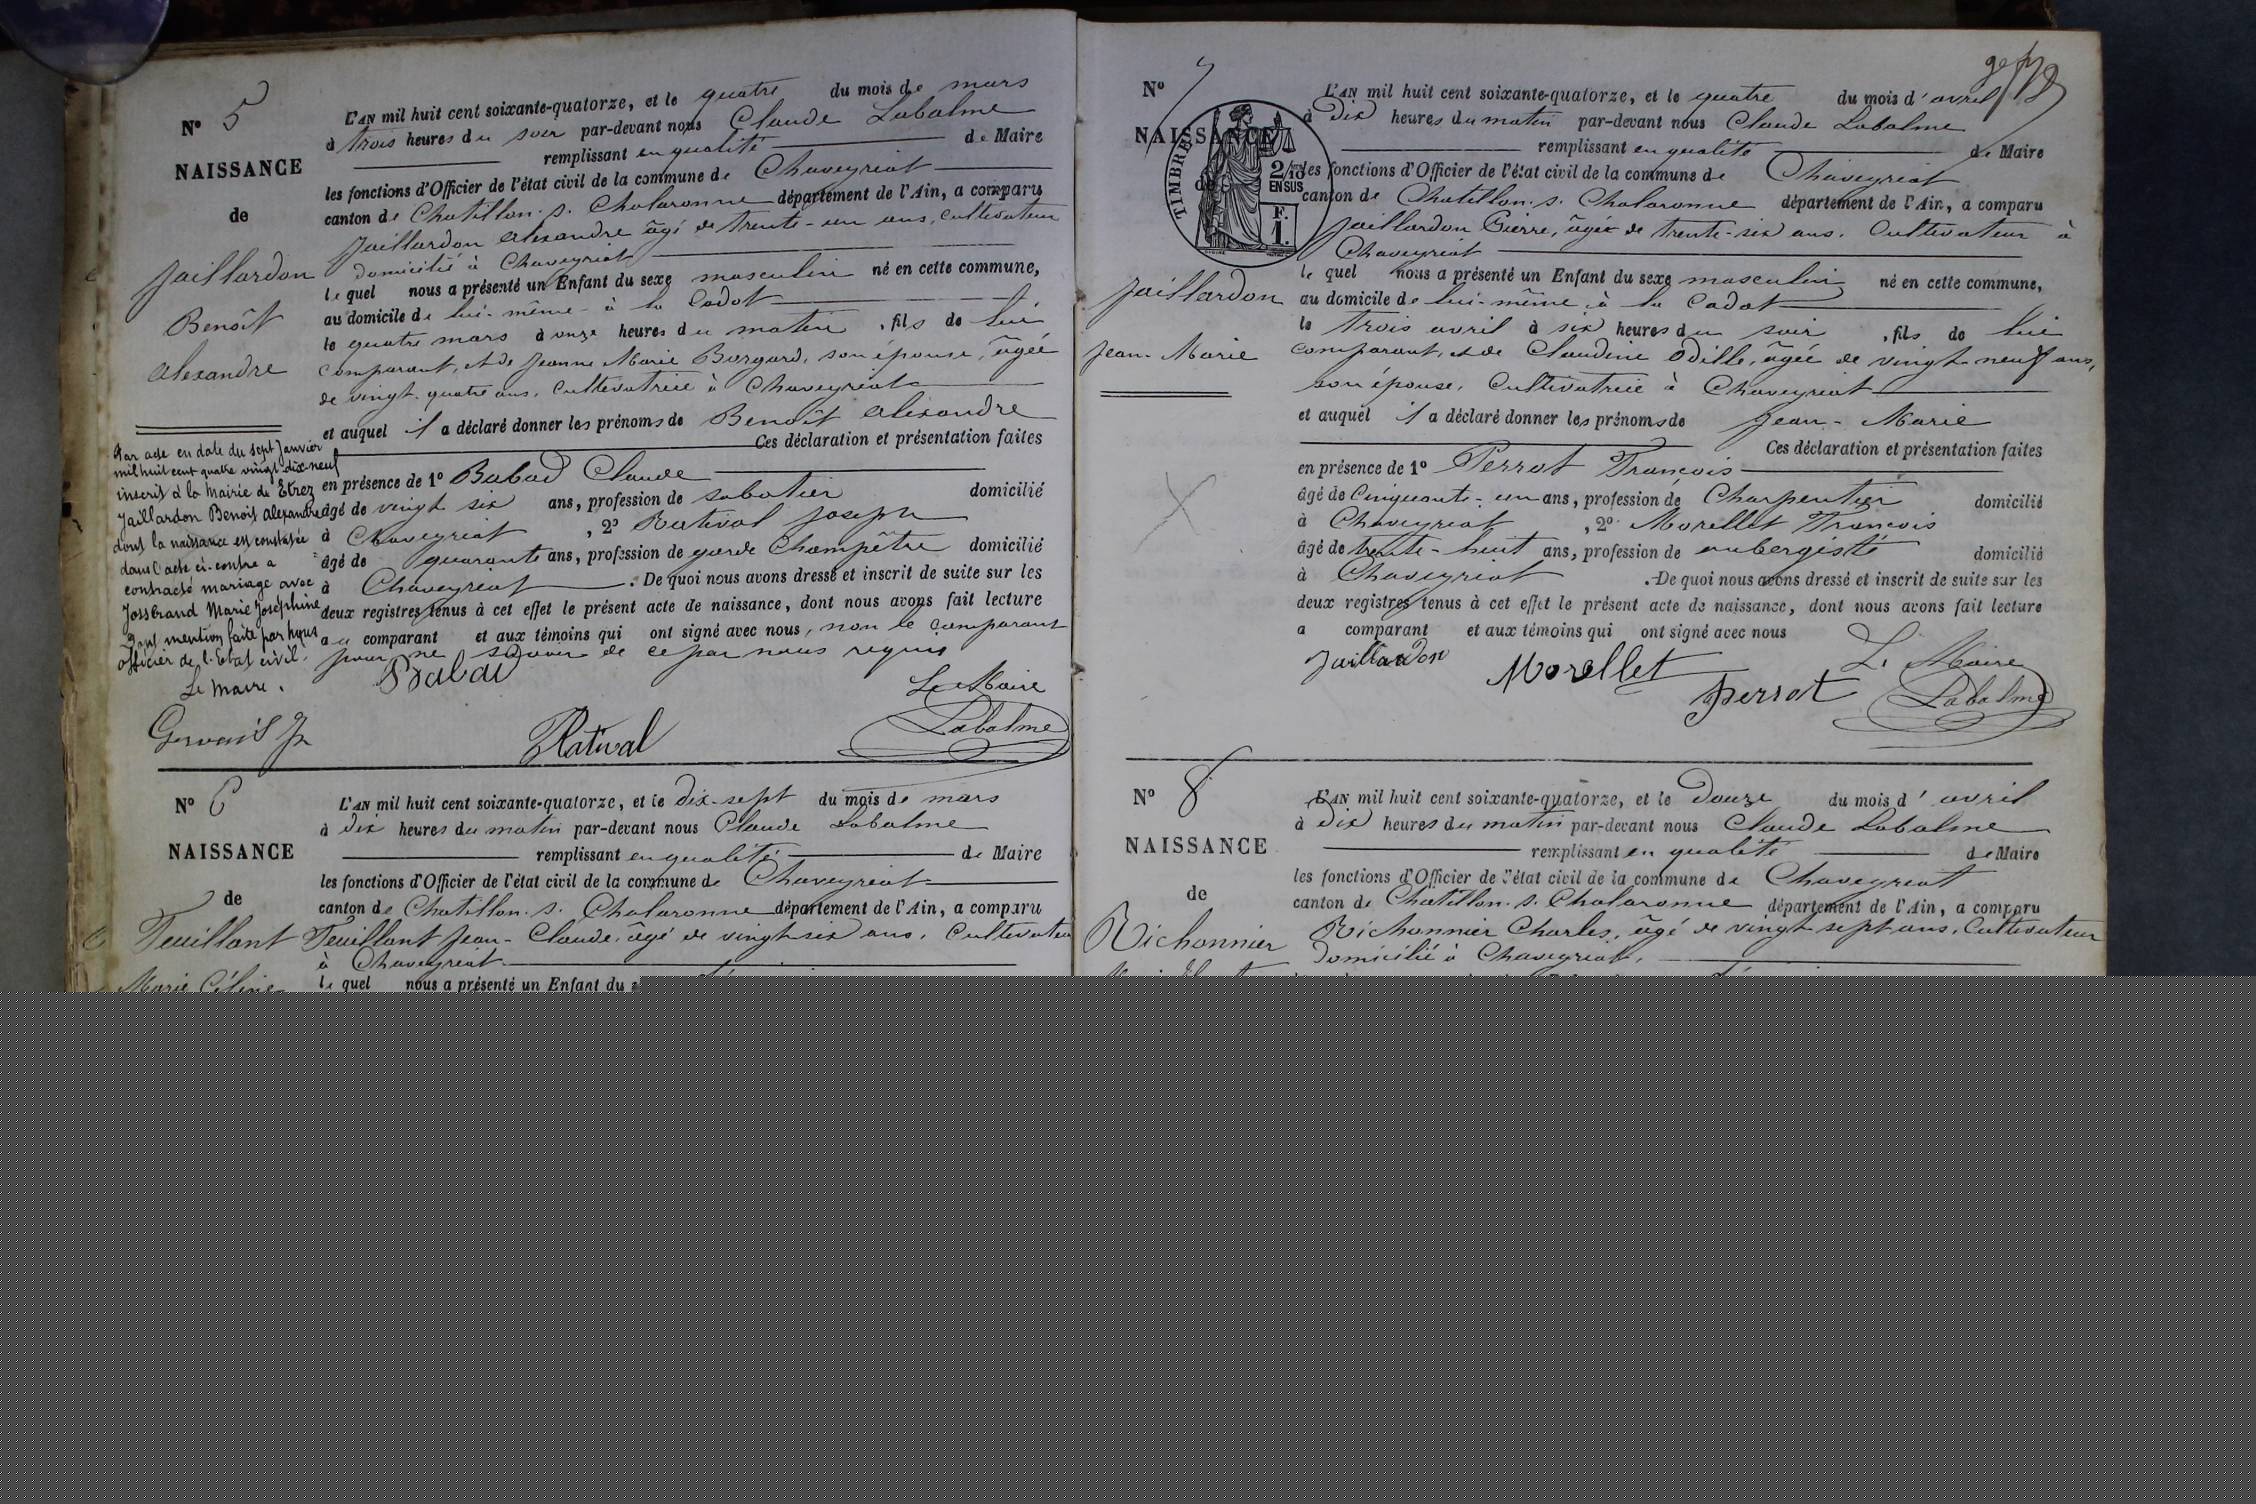 N° 5
NAISSANCE
de
Jaillardon
Benoît
Alexandre
Par acte en date du sept Janvier
mil huit cent quatre vingt-dix-neuf
inscrit à la Mairie de Etrez
Jaillardon Benoit Alexandre
dont la naissance est constatée
dans l'acte ci-contre a
contracté mariage avec
Josserand Marie Joséphine
Dont mention faite par nous
officier de l'Etat civil.
Le Maire.
Gervais Jh
L'AN mil huit cent soixante-quatorze, et le quatre du mois de mars
à trois heures du soir par-devant nous Claude Labalme
remplissant en qualité de Maire
les fonctions d'Officier de l'état civil de la commune de Chaveyriat
canton de Chatillon. s. Chalaronne département de l'Ain, a comparu
Jaillardon Alexandre âgé de trente-un ans, cultivateur
domicilié à Chaveyriat
le quel nous a présenté un Enfant du sexe masculin né en cette commune,
au domicile de lui-même à la Cadot
le quatre mars à onze heures du matin, fils de lui
comparant, et de Jeanne Marie Borgard, son épouse, âgée
de vingt-quatre ans, cultivatrice à Chaveyriat
et auquel il a déclaré donner les prénoms de Benoît Alexandre
Ces déclaration et présentation faites
en présence de 1° Babad Claude
âgé de vingt six ans, profession de sabotier domicilié
à Chaveyriat, 2° Ratival Joseph
âgé de quarante ans, profession de garde Champêtre domicilié
à Chaveyriat. De quoi nous avons dressé et inscrit de suite sur les
deux registres tenus à cet effet le présent acte de naissance, dont nous avons fait lecture
au comparant et aux témoins qui ont signé avec nous, non le comparant
pour ne savoir de ce par nous requis
Babad
Le Maire
Ratival
Labalme
N° 6
NAISSANCE
de
Feuillant
Marie Céline
L'AN mil huit cent soixante-quatorze, et le dix-sept du mois de mars
à dix heures du matin par-devant nous Claude Labalme
remplissant en qualité de Maire
les fonctions d'Officier de l'état civil de la commune de Chaveyriat
canton de Chatillon. s. Chalaronne département de l'Ain, a comparu
Feuillant Jean-Claude, âgé de vingt six ans, Cultivateur
à Chaveyriat
le quel nous a présenté un Enfant du
N° 7
NAISSANCE
de
TIMBRE
2/10mes
EN SUS
F.
1.
Jaillardon
Jean-Marie
L'AN mil huit cent soixante-quatorze, et le quatre du mois d'avril
à Dix heures du matin par-devant nous Claude Labalme
remplissant en qualité de Maire
les fonctions d'Officier de l'état civil de la commune de Chaveyriat
canton de Chatillon. s. Chalaronne département de l'Ain, a comparu
Jaillardon Pierre, âgée de trente-six ans. Cultivateur à
Chaveyriat
le quel nous a présenté un Enfant du sexe masculin né en cette commune,
au domicile de lui-même à la Cadot
le trois avril à six heures du soir, fils de lui
comparant, et de Claudine Odille, âgée de vingt-neuf ans,
son épouse, Cultivatrice à Chaveyriat
et auquel il a déclaré donner les prénoms de Jean-Marie
Ces déclaration et présentation faites
en présence de 1° Perrot François
âgé de Cinquante-un ans, profession de Charpentier domicilié
à Chaveyriat, 2° Morellet François
âgé de trente-huit ans, profession de aubergiste domicilié
à Chaveyriat. De quoi nous avons dressé et inscrit de suite sur les
deux registres tenus à cet effet le présent acte de naissance, dont nous avons fait lecture
a comparant et aux témoins qui ont signé avec nous
Jaillardon Morellet Le Maire
Perrot Labalme
N° 8
NAISSANCE
de
Richonnier
L'AN mil huit cent soixante-quatorze, et le Douze du mois d'avril
à dix heures du matin par-devant nous Claude Labalme
remplissant en qualité de Maire
les fonctions d'Officier de l'état civil de la commune de Chaveyriat
canton de Chatillon. s. Chalaronne département de l'Ain, a comparu
Richonnier Charles, âgé de vingt sept ans, Cultivateur
domicilié à Chaveyriat,